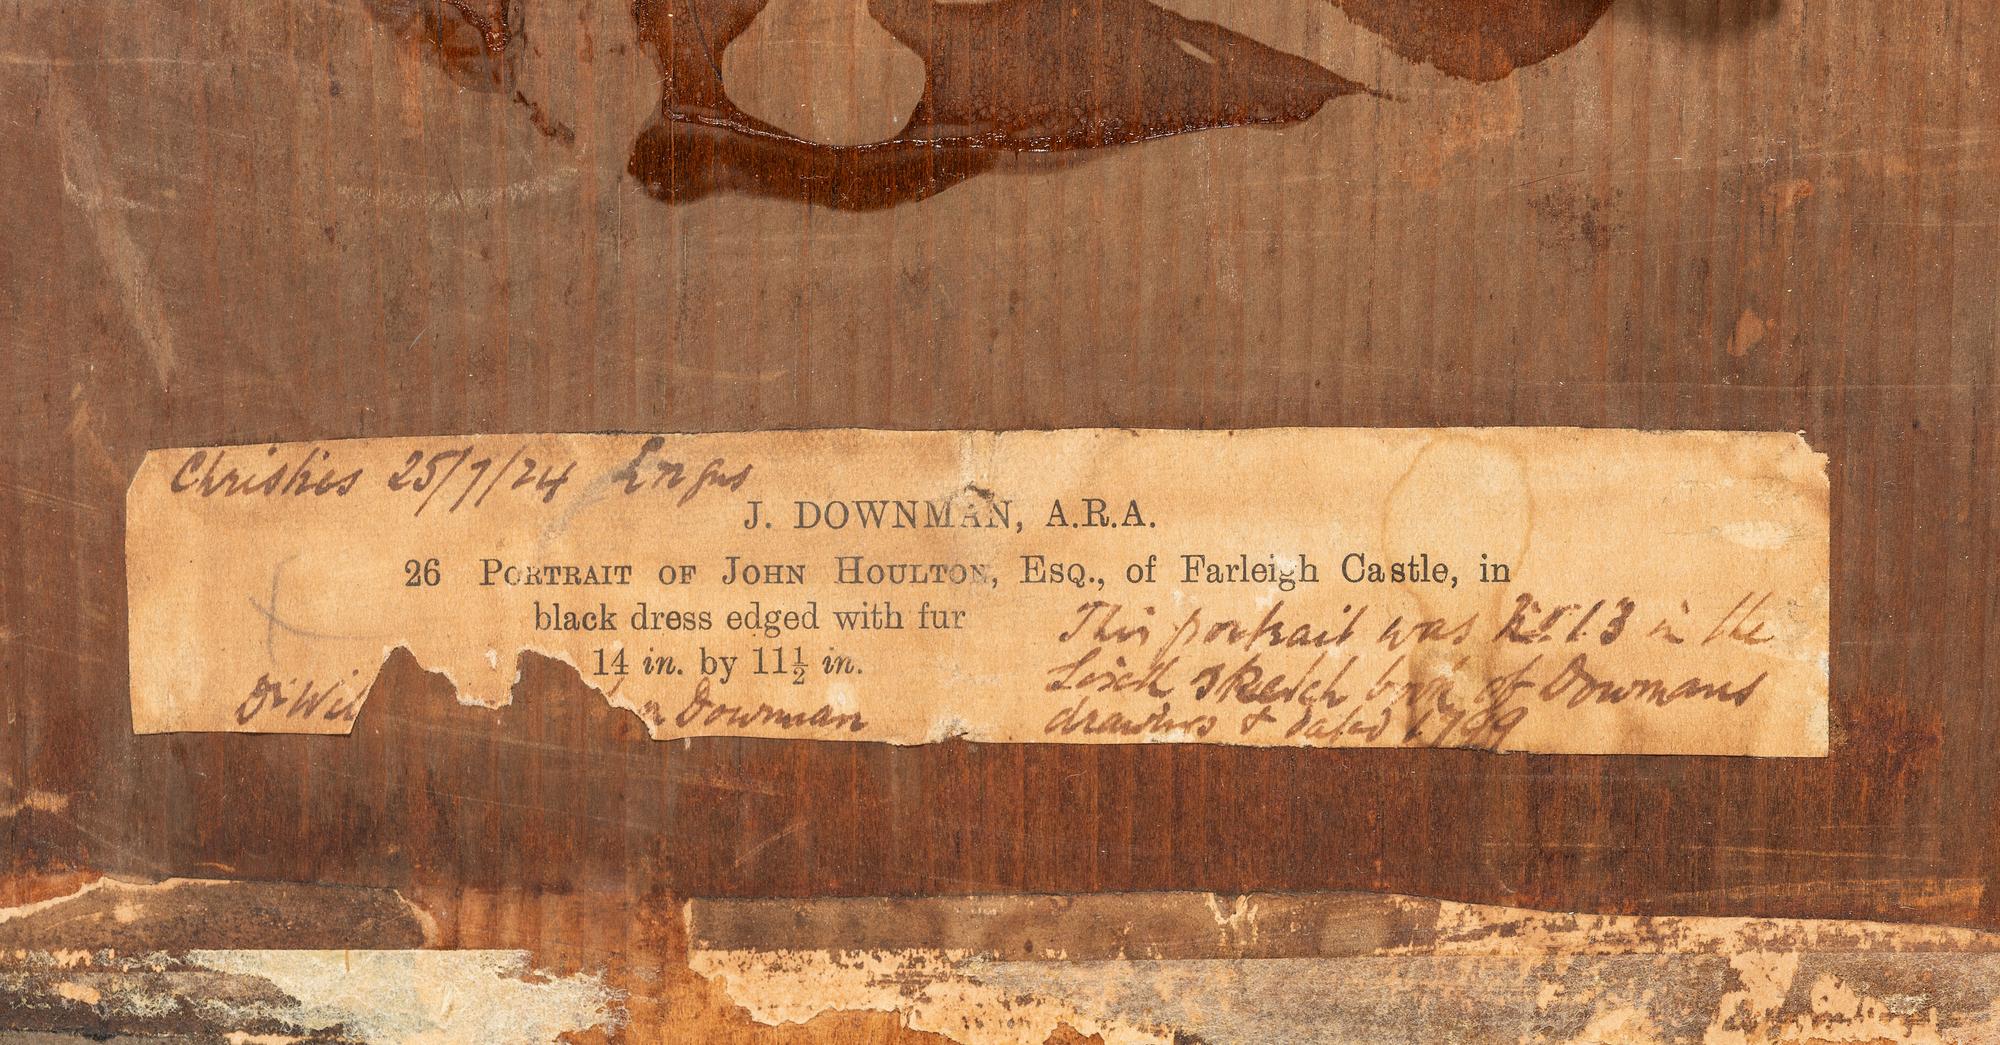 Christies 25/7/24
J. DOWNMAN, A.R.A.
26 PORTRAIT OF JOHN HOULTON, ESQ., of Farleigh Castle, in
black dress edged with fur
14 in. by 11½ in.
Dr Wil n Downman
This portrait was No. 13 in the
sketch book of Downmans
drawings & dated 1799